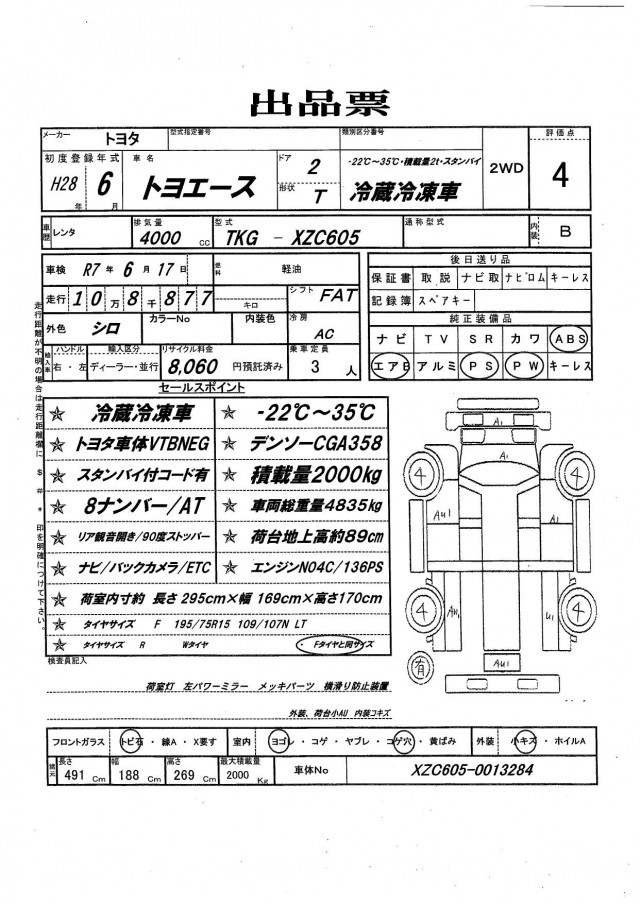 出品票
メーカー トヨタ 型式指定番号 類別区分番号 2WD 評価点
初度登録年式 車名 ドア 2 -22℃~35℃・積載量2t・スタンバイ 4
H28年 6月 トヨエース 形状 T 冷蔵冷凍車
車歴 レンタ 排気量 4000 cc 型式 TKG - XZC605 通称型式 内装 B
車検 R7年 6月 17日 燃料 軽油 後日送り品
保証書 取説 ナビ取 ナビロム キーレス
走行 10万8千877 キロ シフト FAT 記録簿 スペアキー
外色 シロ カラーNo 内装色 冷房 AC 純正装備品
ナビ TV SR カワ ABS
輸入車 ハンドル 右・左 輸入区分 ディーラー・並行 リサイクル料金 8,060 円預託済み 乗車定員 3 人 エアB アルミ PS PW キーレス
走行距離が不明の場合は走行距離欄に $ # * 印を明確につけて下さい。
セールスポイント
冷蔵冷凍車 -22℃~35℃
トヨタ車体VTBNEG デンソーCGA358
スタンバイ付コード有 積載量2000kg
8ナンバー/AT 車両総重量4835kg
リア観音開き/90度ストッパー 荷台地上高約89cm
ナビ/バックカメラ/ETC エンジンN04C/136PS
荷室内寸約 長さ295cm×幅169cm×高さ170cm
タイヤサイズ F 195/75R15 109/107N LT
タイヤサイズ R Wタイヤ ・Fタイヤと同サイズ
A1
A1
4 4
AU1 A1
4 4
AU1 U1
有 AU1
検査員記入
荷室灯 左パワーミラー メッキパーツ 横滑り防止装置
外装、荷台小AU 内装コキズ
フロントガラス トビ石・線A・X要す 室内 ヨゴレ・コゲ・ヤブレ・コゲ穴・黄ばみ 外装 小キズ・ホイルA
諸元 長さ 491 Cm 幅 188 Cm 高さ 269 cm 最大積載量 2000 Kg 車体No XZC605-0013284